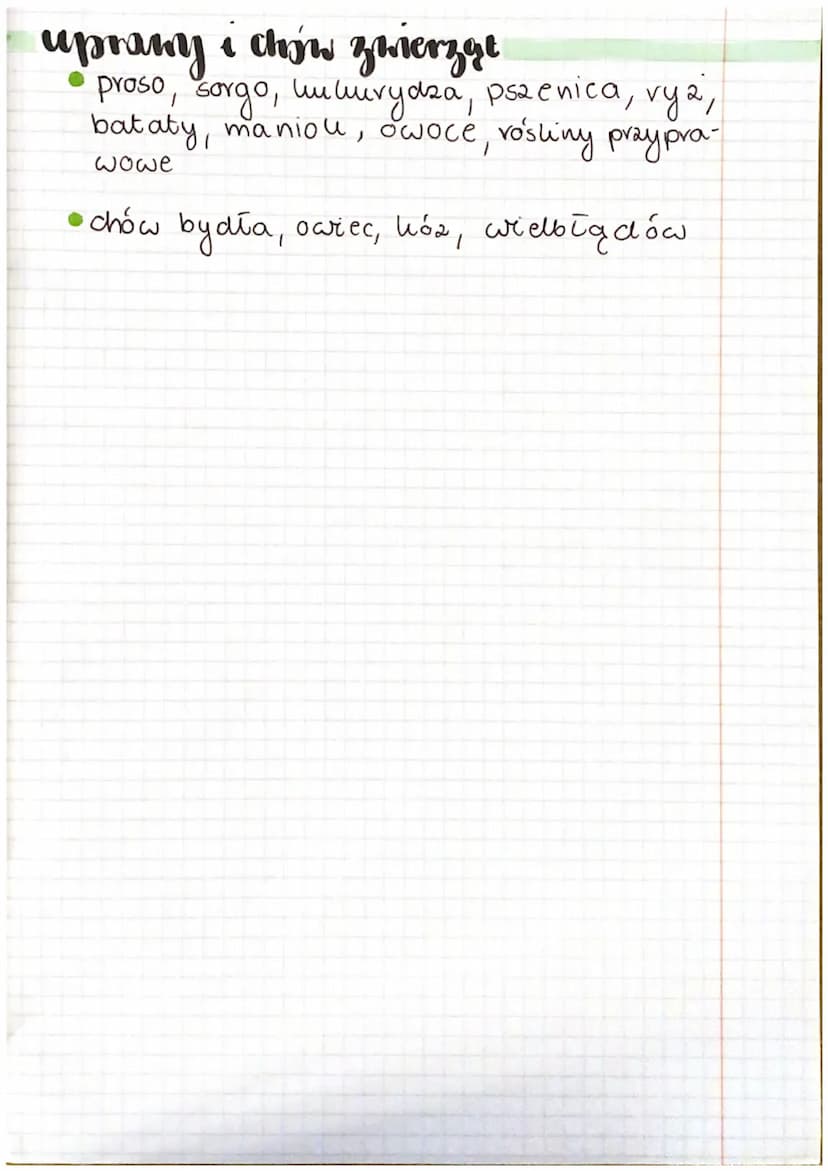 uprawy i chów zwierząt
• proso, sorgo, kukurydza, pszenica, ryż,
bataty, maniok, owoce, rośliny przypra-
wowe
• chów bydła, owiec, kóz, wielbłądów